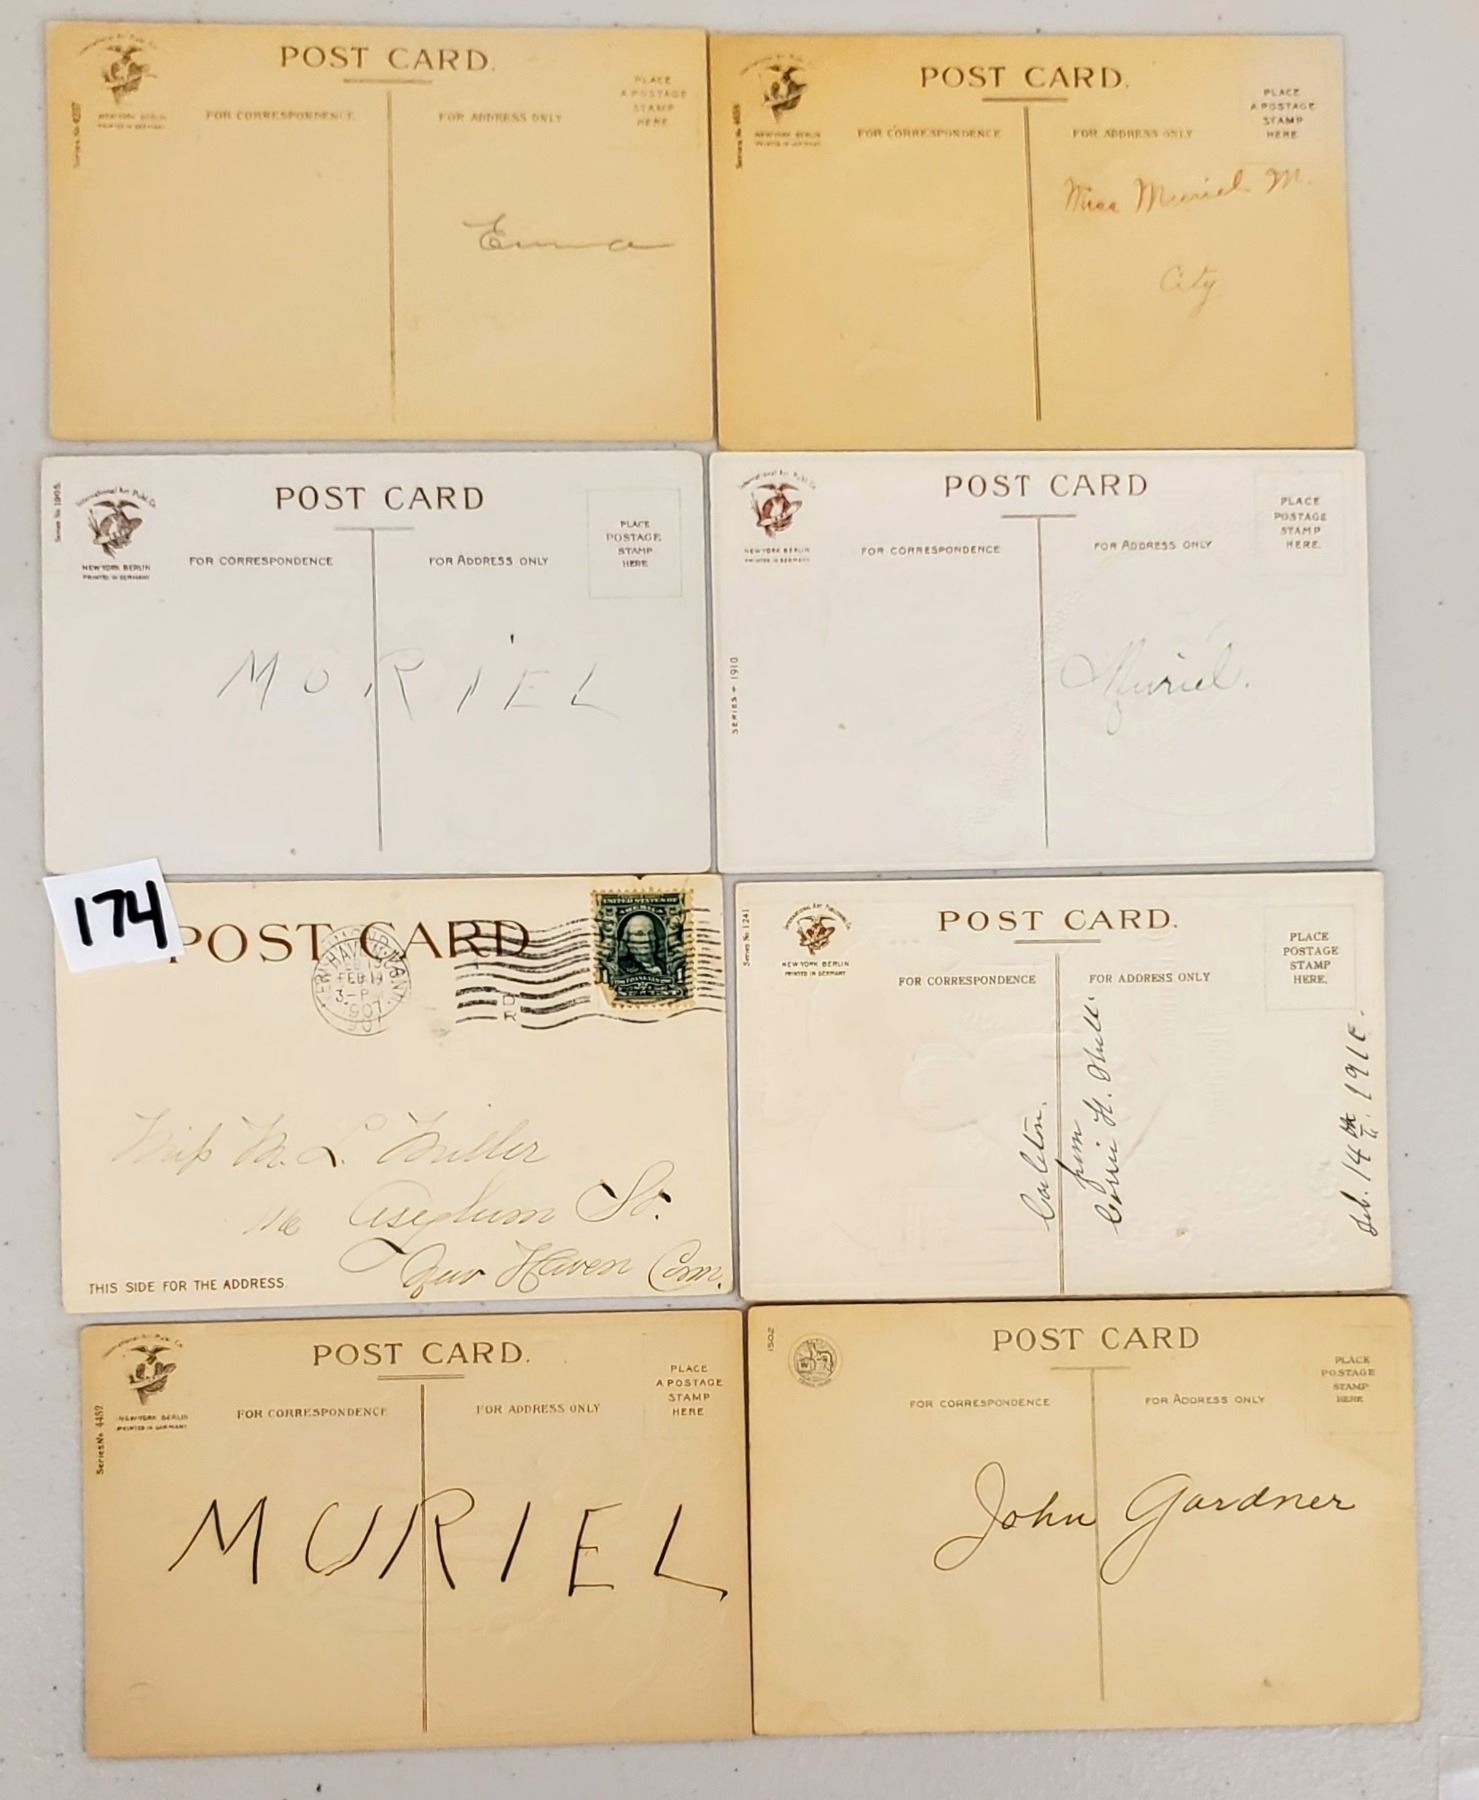 International Art Publ. Co.
POST CARD.
PLACE
A POSTAGE
STAMP
HERE
Series. No. 4257
NEW YORK BERLIN
PRINTED IN GERMANY
FOR CORRESPONDENCE
FOR ADDRESS ONLY
Emma
POST CARD.
PLACE
A POSTAGE
STAMP
HERE
Series. No.
NEW YORK BERLIN
PRINTED IN GERMANY
FOR CORRESPONDENCE
FOR ADDRESS ONLY
Miss Muriel M.
City
International Art Publ. Co.
POST CARD
PLACE
POSTAGE
STAMP
HERE
Series No.
NEW YORK BERLIN
PRINTED IN GERMANY
FOR CORRESPONDENCE
FOR ADDRESS ONLY
MURIEL
International Art Publ. Co.
POST CARD
PLACE
POSTAGE
STAMP
HERE.
NEW YORK BERLIN
PRINTED IN GERMANY
FOR CORRESPONDENCE
FOR ADDRESS ONLY
SERIES 1910
Muriel.
174
POST CARD
HAVEN
FEB 14
3-P
1907
UNITED STATES OF
AMERICA
FRANKLIN
Miss M. L. Miller
Asylum St.
New Haven Conn.
THIS SIDE FOR THE ADDRESS
International Art Publishing Co.
POST CARD.
PLACE
POSTAGE
STAMP
HERE.
Series No. 1241
NEW YORK BERLIN
PRINTED IN GERMANY
FOR CORRESPONDENCE
FOR ADDRESS ONLY
Carleton.
from
Corrie H.
Feb. 14th
International Art Publ. Co.
POST CARD.
PLACE
A POSTAGE
STAMP
HERE
Series No. 4452
NEW YORK BERLIN
PRINTED IN GERMANY
FOR CORRESPONDENCE
FOR ADDRESS ONLY
MURIEL
1502
POST CARD
PLACE
POSTAGE
STAMP
HERE
FOR CORRESPONDENCE
FOR ADDRESS ONLY
John Gardner